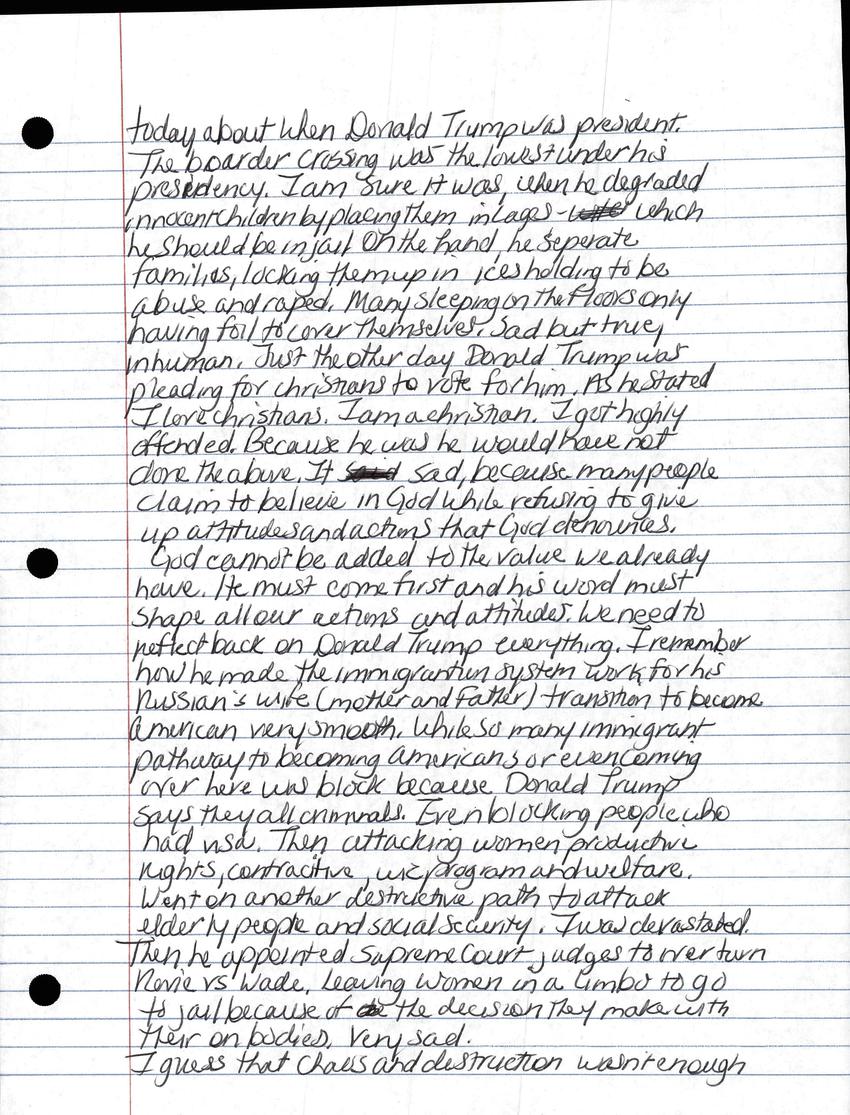 today about when Donald Trump was president.
The boarder crossing was the lowest under his
presidency. I am sure it was, when he degraded
innocent children by placing them in cages - which
he should be in jail On the hand, he seperate
families, locking them up in ices holding to be
abuse and raped. Many sleeping on the floors only
having foil to cover themselves. Sad but true,
inhuman. Just the other day Donald Trump was
pleading for christians to vote for him. As he stated
I love christians. I am a christian. I got highly
offended. Because he was he would have not
done the above. It sad, because many people
claim to believe in God while refusing to give
up attitudes and actions that God denounces.
God cannot be added to the value we already
have. He must come first and his word must
shape all our actions and attitudes. We need to
reflect back on Donald Trump everything. I remember
how he made the immigrantion system work for his
Russian's wife (mother and Father) transition to become
American very smooth. While so many immigrant
pathway to becoming Americans or even coming
over here was block because Donald Trump
says they all criminals. Even blocking people who
had visa. Then attacking women productive
rights, contracitive, wic program and welfare.
Went on another destructive path to attack
elderly people and social security. I was devastated.
Then he appointed Supreme Court judges to overturn
Rovie vs Wade. Leaving women in a limbo to go
to jail because of the decision they make with
their on bodies. Very sad.
I guess that chaos and destruction wasn't enough